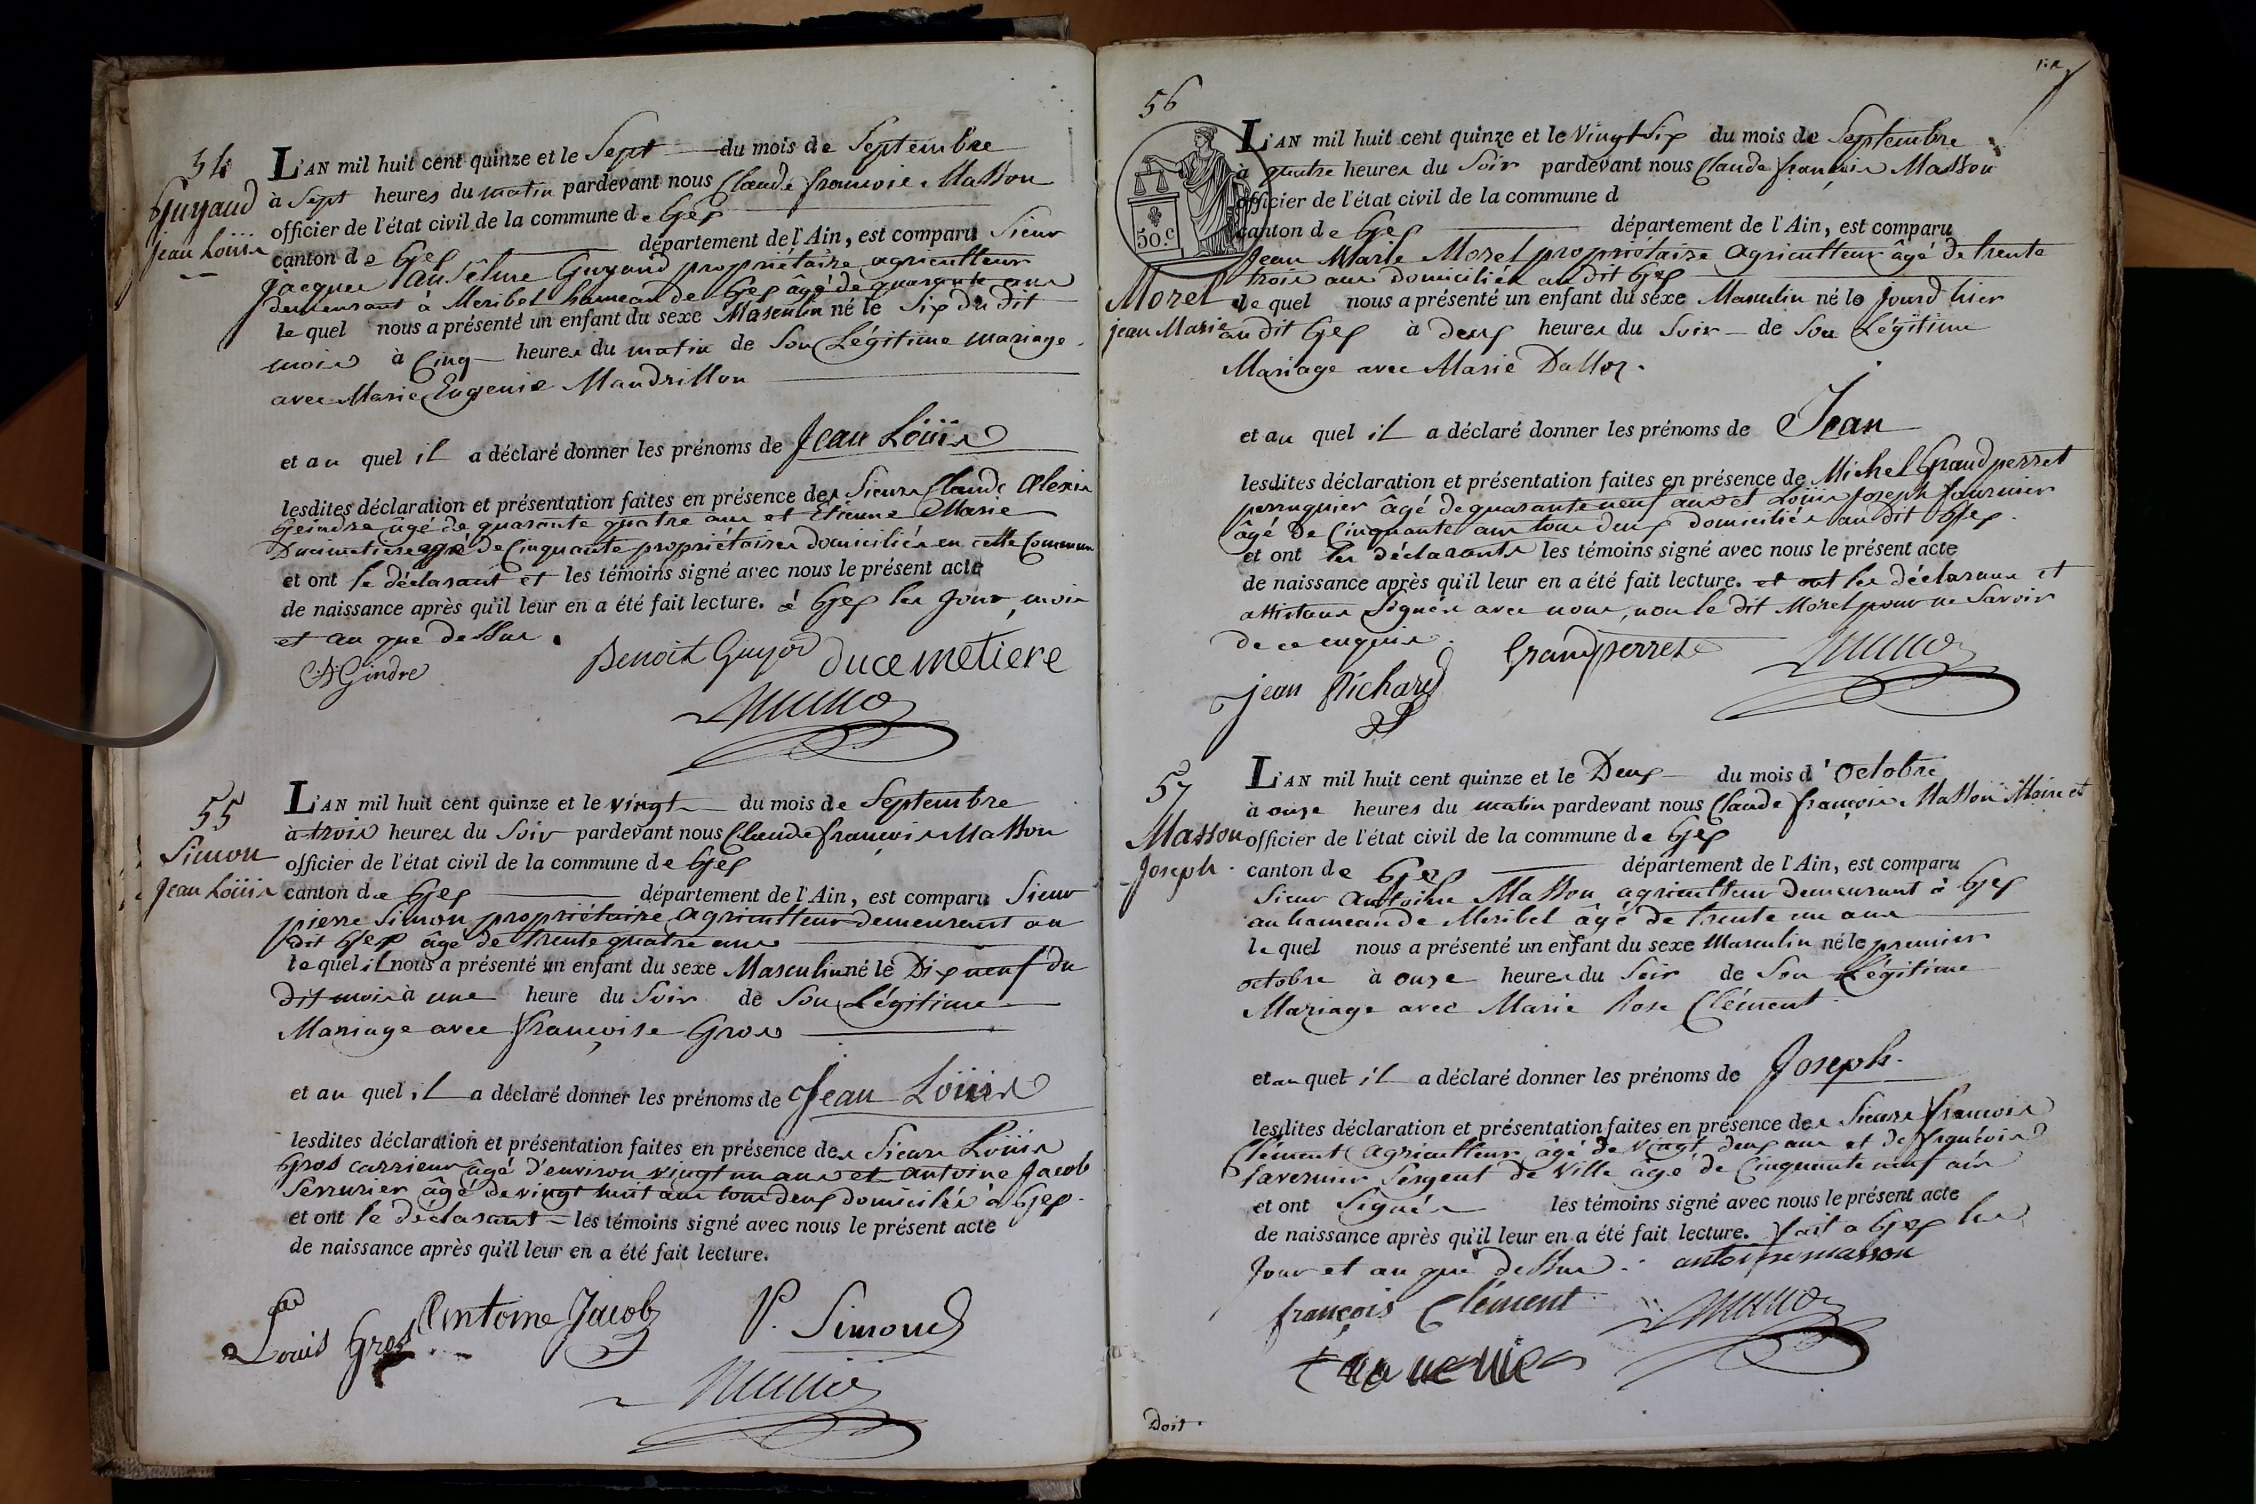 54
Guyaud
Jean Loüis
L'AN mil huit cent quinze et le Sept du mois de Septembre
à Sept heures du matin pardevant nous Claude françois Masson
officier de l'état civil de la commune de Gex
canton de Gex département de l'Ain, est comparu Sieur
jacques anselme Guyaud propriétaire agriculteur
demeurant à Meribel hameau de Gex âgé de quarante ans
le quel nous a présenté un enfant du sexe Masculin né le Six du dit
mois à Cinq heures du matin de Son Légitime mariage
avec Marie Eugenie Mandrillon
et au quel il a déclaré donner les prénoms de Jean Loüis
lesdites déclaration et présentation faites en présence des Sieurs Claude Alexis
Geindre âgé de quarante quatre ans et Etienne Marie
Ducimetiere agé de Cinquante propriétaires domiciliés en cette Commune
et ont le déclarant et les témoins signé avec nous le présent acte
de naissance après qu'il leur en a été fait lecture. à Gex les Jour, mois
et an que dessus.
Gindre Benoit Guyod ducemetiere
55
Simon
Jean Loüis
L'AN mil huit cent quinze et le vingt du mois de Septembre
à trois heures du Soir pardevant nous Claude françois Masson
officier de l'état civil de la commune de Gex
canton de Gex département de l'Ain, est comparu Sieur
pierre Simon propriétaire agriculteur demeurant au
dit Gex âgé de trente quatre ans
le quel il nous a présenté un enfant du sexe Masculin né le Dix neuf du
dit mois à une heure du Soir de Son Légitime
Mariage avec françoise Gros
et au quel il a déclaré donner les prénoms de Jean Loüis
lesdites déclaration et présentation faites en présence des Sieurs Loüis
Gros carrieur âgé d'environ vingt un ans et Antoine Jacob
Serrurier âgé de vingt huit ans tous deux domiciliés à Gex.
et ont le déclarant les témoins signé avec nous le présent acte
de naissance après qu'il leur en a été fait lecture.
Louis Gros Antoine Jacob P. Simond
56
50.c
Morel
jean Marie
L'AN mil huit cent quinze et le Vingt Six du mois de Septembre
à quatre heures du Soir pardevant nous Claude françois Masson
officier de l'état civil de la commune d
canton de Gex département de l'Ain, est comparu
Jean Marie Morel propriétaire agriculteur âgé de trente
trois ans domicilié au dit Gex
le quel nous a présenté un enfant du sexe Masculin né le jourd'hier
au dit Gex à deux heures du Soir de Son Légitime
Mariage avec Marie Dalloz.
et au quel il a déclaré donner les prénoms de Jean
lesdites déclaration et présentation faites en présence de Michel Grandperret
perruquier âgé de quarante neuf ans et Loüis Joseph fournier
âgé de Cinquante ans tous deux domiciliés au dit Gex.
et ont les déclarants les témoins signé avec nous le présent acte
de naissance après qu'il leur en a été fait lecture. et ont les déclarans et
assistans Signés avec nous, non le dit Morel pour ne Savoir
de ce enquis.
Grandperret
jean Richard
57
Masson
Joseph.
L'AN mil huit cent quinze et le Deux du mois d'octobre
à onze heures du matin pardevant nous Claude françois Masson Maire et
officier de l'état civil de la commune de Gex
canton de Gex département de l'Ain, est comparu
Sieur Antoine Masson agriculteur demeurant à Gex
au hameau de Meribel âgé de trente un ans
le quel nous a présenté un enfant du sexe Masculin né le premier
octobre à onze heures du Soir de Son Légitime
Mariage avec Marie Rose Clément
et au quel il a déclaré donner les prénoms de Joseph.
lesdites déclaration et présentation faites en présence des Sieurs françois
Clément agriculteur âgé de vingt deux ans et de françois
tavernier Sergent de Ville âgé de Cinquante neuf ans
et ont Signés les témoins signé avec nous le présent acte
de naissance après qu'il leur en a été fait lecture. fait à Gex les
Jour et an que dessus. antoine masson
françois Clément
Doit.